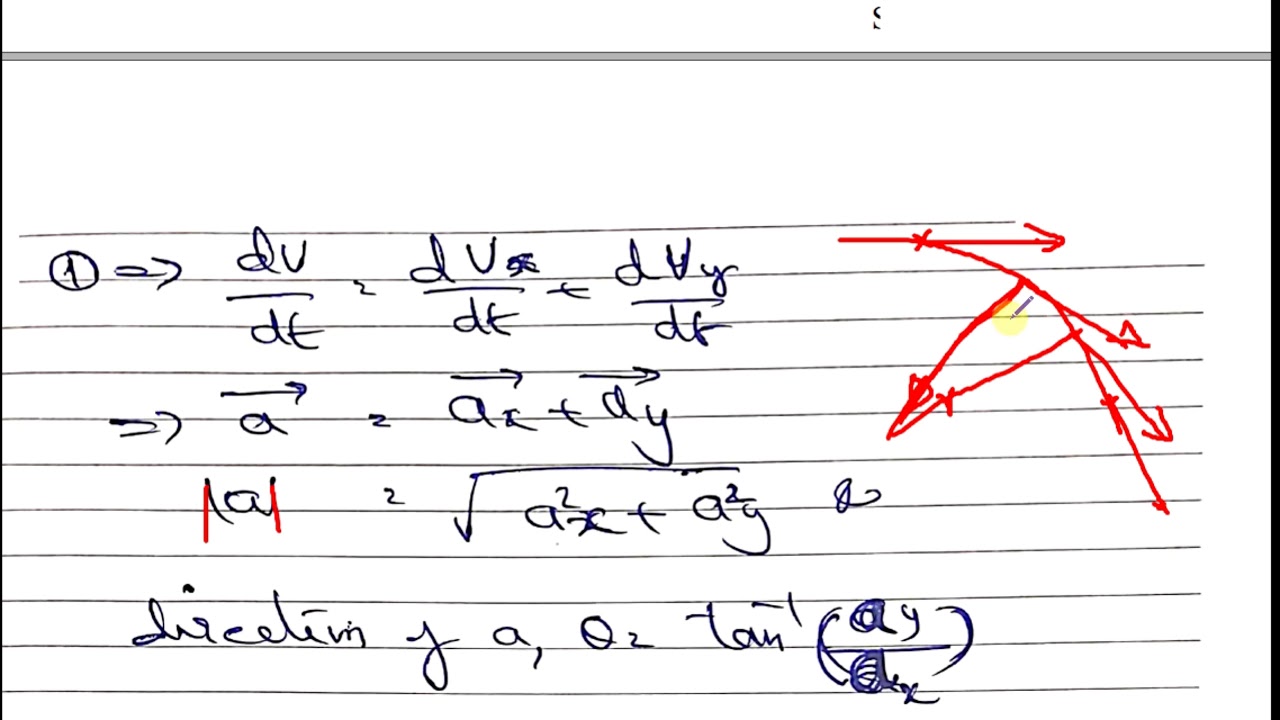 S
① => dV/dt = dVx/dt + dVy/dt
=> a⃗ = a⃗x + a⃗y
|a| = √(a²x + a²y) &
direction of a, θ = tan⁻¹(ay/ax)